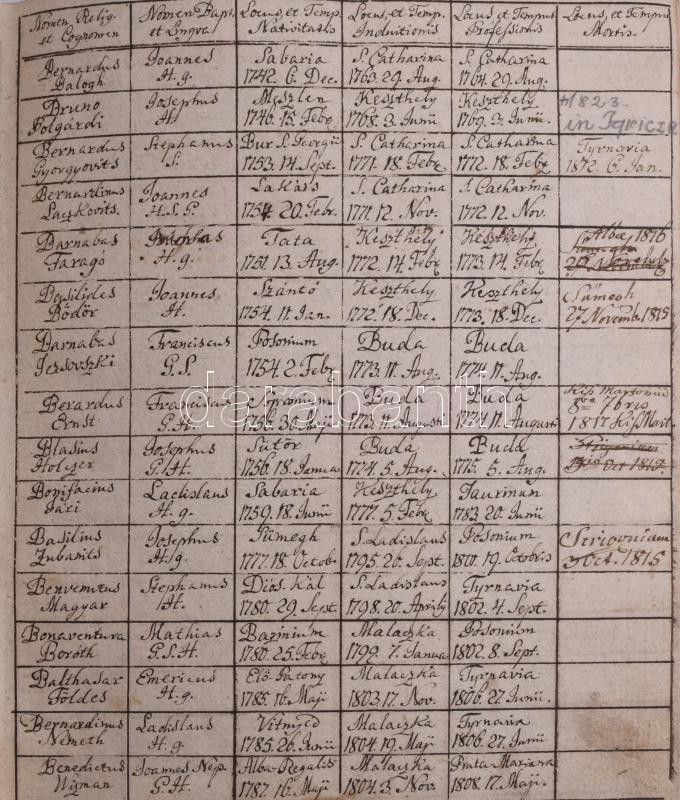 Nomen Relig. et Cognomen | Nomen Bapt. et Lingva | Locus, et Temp. Nativitatis | Locus, et Temp. Induitionis | Locus et Tempus Professionis | Locus, et Tempus Mortis.
Bernardus Balogh | Joannes H. g. | Sabaria 1742. 6. Dec. | S. Catharina 1763. 29. Aug. | S. Catharina 1764. 29. Aug.
Bruno Polgárdi | Josephus H. | Meszlen 1746. 15. Febr. | Keszthely 1768. 3. Junii | Keszthely 1769. 3. Junii. | +1823 in
Bernardus Gyorgyovits | Stephanus S. | Bur S. Georgii 1753. 14. Sept. | S. Catharina 1771. 18. Febr. | S. Catharina 1772. 18. Febr. | Tyrnavia 1812. 6. Jan.
Bernardinus Laczkovits. | Joannes H. S. G. | Lakárs 1754. 20. Febr. | S. Catharina 1771. 12. Nov. | S. Catharina 1772. 12. Nov.
Barnabas Faragó | H. g. | Tata 1751. 13. Aug. | Keszthely 1772. 14. Febr. | Keszthely 1773. 14. Febr. | Albæ 1816
Basilides Bödör | Joannes H. | Szántó 1754. 11. Jan. | Keszthely 1772. 18. Dec. | Keszthely 1773. 18. Dec. | Sümegh 27 Novemb. 1815
Barnabas Jezsovszki | Franciscus G. S. | Posonium 1754. 2. Febr. | Buda 1773. 11. Aug. | Buda 1774. 11. Aug.
Berardus Ernst | Franciscus G. H. | Sopronium 1756. 30. Maji | Buda 1773. 11. August | Buda 1774. 11. Augusti | Kiss Martonii 8 7bris 1817 Kiss Mart.
Blasius Holczer | Josephus G. H. | Sütör 1756. 18. Janua | Buda 1774. 5. Aug. | Buda 1775. 5. Aug. | Oct 1819.
Bonifacius Jári | Ladislaus H. g. | Sabaria 1759. 18. Junii | Keszthely 1777. 5. Febr. | Jaurinum 1783. 20. Junii
Basilius Zubanits | Josephus H. g. | Sümegh 1777. 18. Octob. | S. Ladislaus 1795. 26. Sept. | Posonium 1801. 19. Octobris | Strigonium 3 Oct. 1815
Benvenutus Magyar | Stephanus H. | Diós. Kál 1780. 29. Sept. | S. Ladislaus 1798. 20. Aprily | Tyrnavia 1802. 4. Sept.
Bonaventura Boróth | Mathias G. S. H. | Bazinium 1780. 25. Febr. | Malaczka 1799. 7. Janua | Posonium 1802. 8. Sept.
Balthasar Földes | Emericus H. g. | Elö. Patony 1785. 16. Maji | Malaczka 1803. 17. Nov. | Tyrnavia 1806. 27. Junii.
Bernardinus Nemeth | Ladislaus H. g. | Vitnyéd 1785. 26. Junii | Malaczka 1804. 19. Maji | Tyrnavia 1806. 27. Junii.
Benedictus Nÿman | Joannes Nep. G. H. | Alba-Regalis 1787. 16. Maji | Malaczka 1804. 3. Nov. | Prata Mariana 1808. 17. Maji.
darabanth